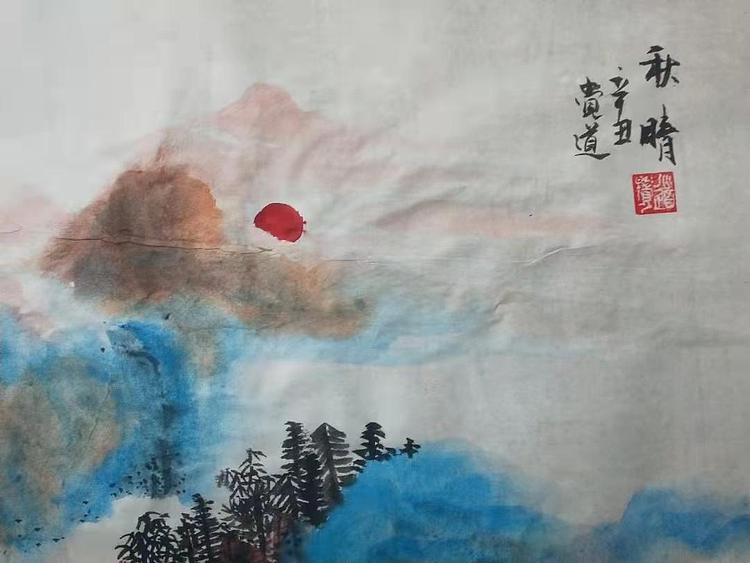 秋晴
辛丑
貴道